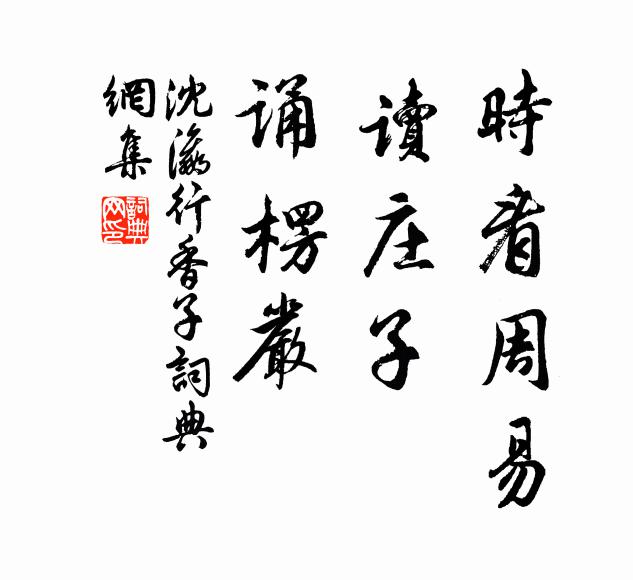 時看周易
讀庄子
誦楞嚴
沈瀛行香子詞典
網集
詞典网印